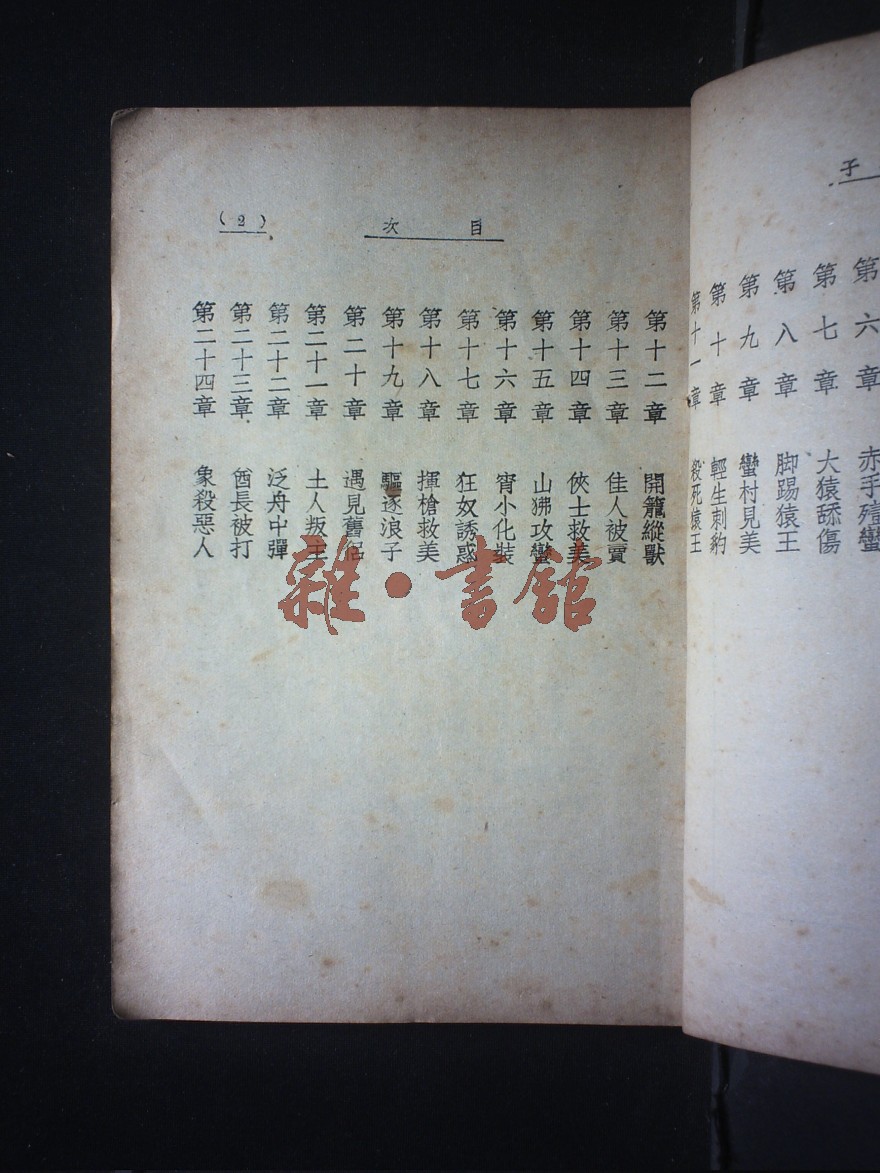 子
第六章 赤手殪蠻
第七章 大猿舔傷
第八章 脚踢猿王
第九章 蠻村見美
第十章 輕生刺豹
第十一章 殺死猿王
目次
(2)
第十二章 開籠縱獸
第十三章 佳人被賣
第十四章 俠士救美
第十五章 山狒攻蠻
第十六章 宵小化裝
第十七章 狂奴誘惑
第十八章 揮槍救美
第十九章 驅逐浪子
第二十章 遇見舊侶
第二十一章 土人叛主
第二十二章 泛舟中彈
第二十三章 酋長被打
第二十四章 象殺惡人
雜·書館